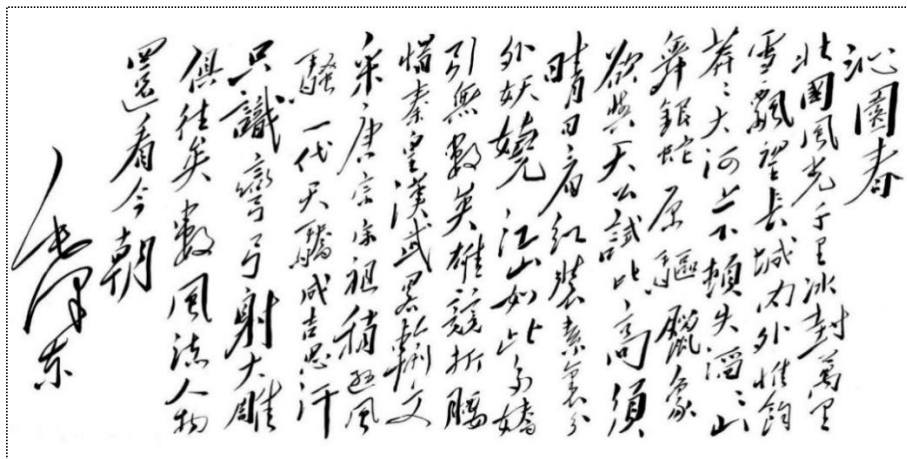 沁園春
北國風光千里冰封萬里
雪飄望長城內外惟餘
莽〻大河上下頓失滔〻山
舞銀蛇原驅臘象
欲與天公試比高須
晴日看紅裝素裹分
外妖嬈江山如此多嬌
引無數英雄競折腰
惜秦皇漢武略輸文
采唐宗宋祖稍遜風
騷一代天驕成吉思汗
只識彎弓射大雕
俱往矣數風流人物
還看今朝
毛澤东